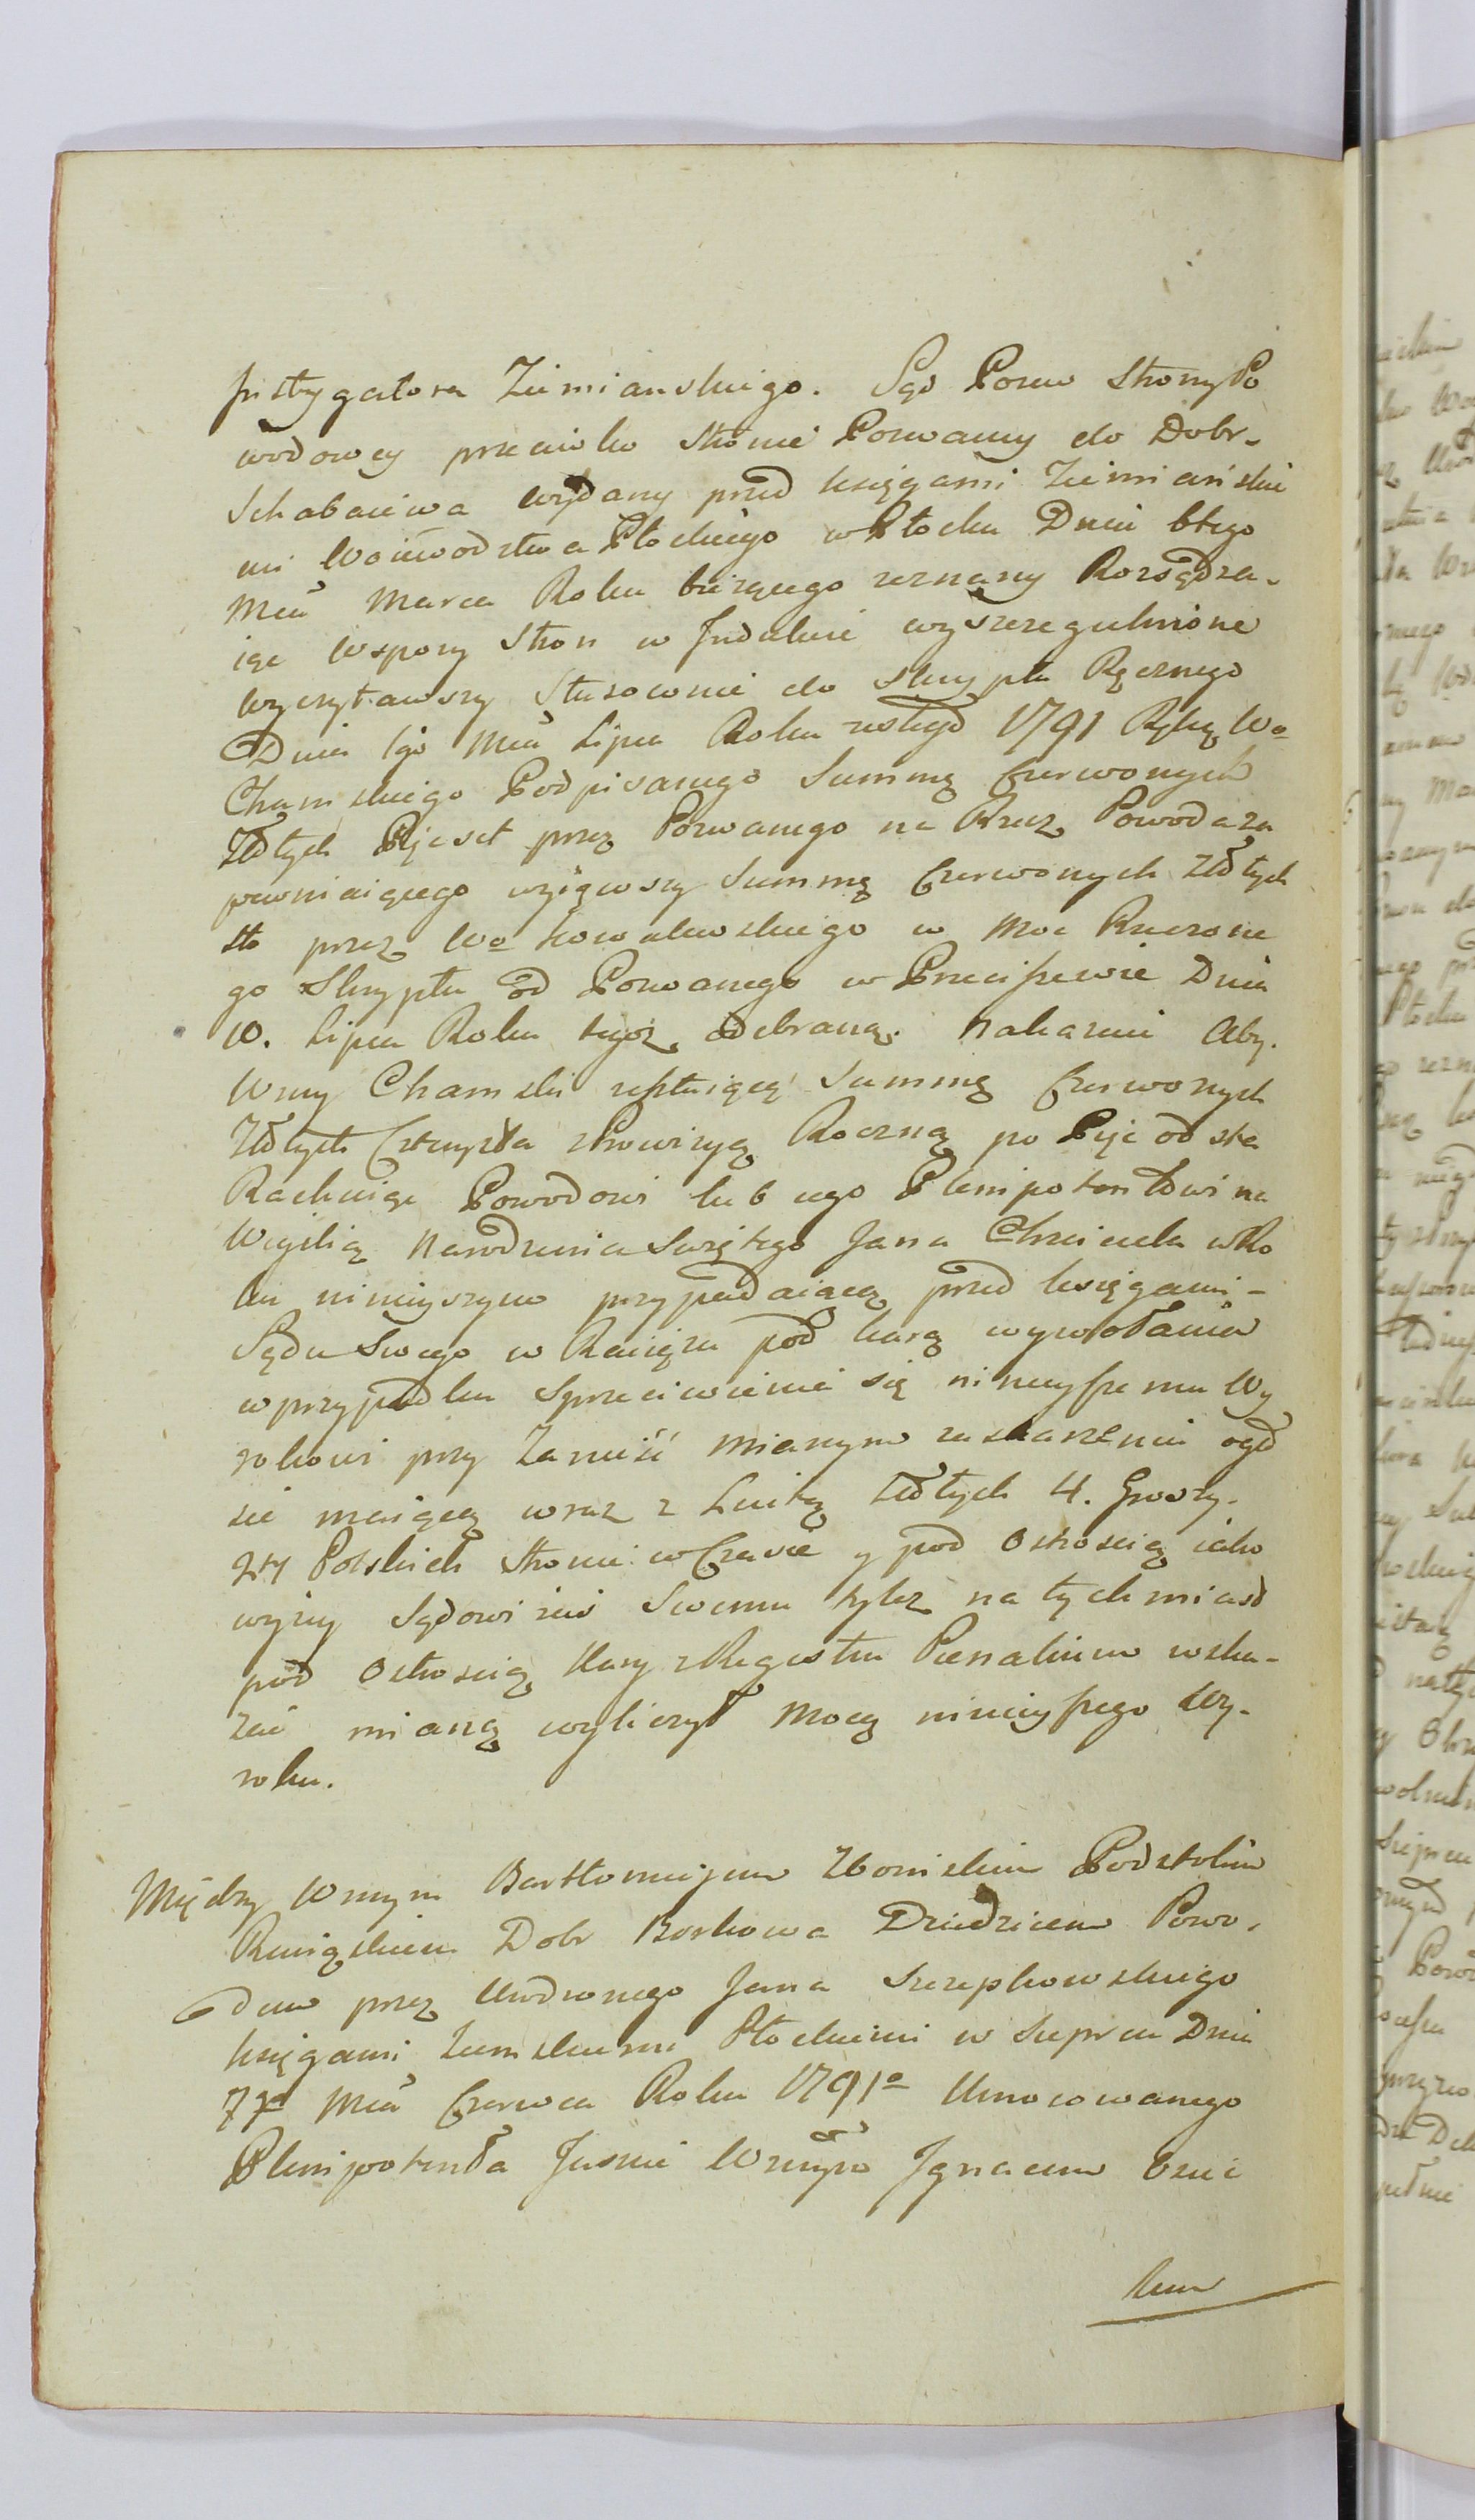 Instygatora Ziemianskiego. Sąd Pozew Strony Po
wodowey przeciwko Stronie Pozwaney do Dobr
Schabaiewa wydany przed księgami Ziemiańskie
mi Woiewodztwa Płockiego w Płocku Dnia 6tego
Mca Marca Roku bieżącego zeznany Rozsądza-
iąc wspory Stron w Indukcie wyszczegulnione
wyczytawszy Stosownie do Skryptu Ręcznego
Dnia 1go Mca Lipca Roku zeszłgo 1791 Ręką Wo
Chamskiego Podpisanego Summę Czerwonych
Złłtych Pięcset przez Pozwanego na Rzecz Powoda za
pewniaiącego wziąwszy Summę Czerwonych Złłtych
sto przez Wo Kowalewskiego w Moc Rzeczone
go Skryptu od Pozwanego w Preciszewie Dnia
10. Lipca Roku tegoż odebraną. Nakazuie Aby.
Wmy Chamski resztuiącą Summę Czerwonych
Złłtych Czterysta z Prowizyą Roczną po Pięć od sta
Rachuiąc Powodowi lub iego Plenipotentowi na
Wigilią Narodzenia Swiętego Jana Chrzciciela w Ro
ku ninieyszym przypadaiącą przed księgami -
Sądu Swego w Raciążu pod karą wywołania
w przypadku Sprzeciwienia się ninieyszemu Wy
rokowi przy Zanieść mianym zaskarzeniu ogło
sić maiącą wraz z Luitą Złłtych 4. Groszy.
24 Polskich Stronie w Czasie y pod Ostroscią iako
wyżey Sądowi zaś Swemu tyleż natychmiast
pod Ostroscią Kary z Regestru Poenalium wska-
zać mianą wyliczył Mocą ninieyszego Wy-
roku.
Między Wmym Bartłomiejem Zboinskim Podstolim
Raciązkiem Dobr Borkowa Dziedzicem Powo-
dem przez Urodzonego Jana Szczepkowskiego
księgami Ziemskiemi Płockiemi w Sieprcu Dnia
77o Mca Czerwca Roku 1791o Umocowanego
Plenipotenta Jasnie Wmym Ignacem
kim